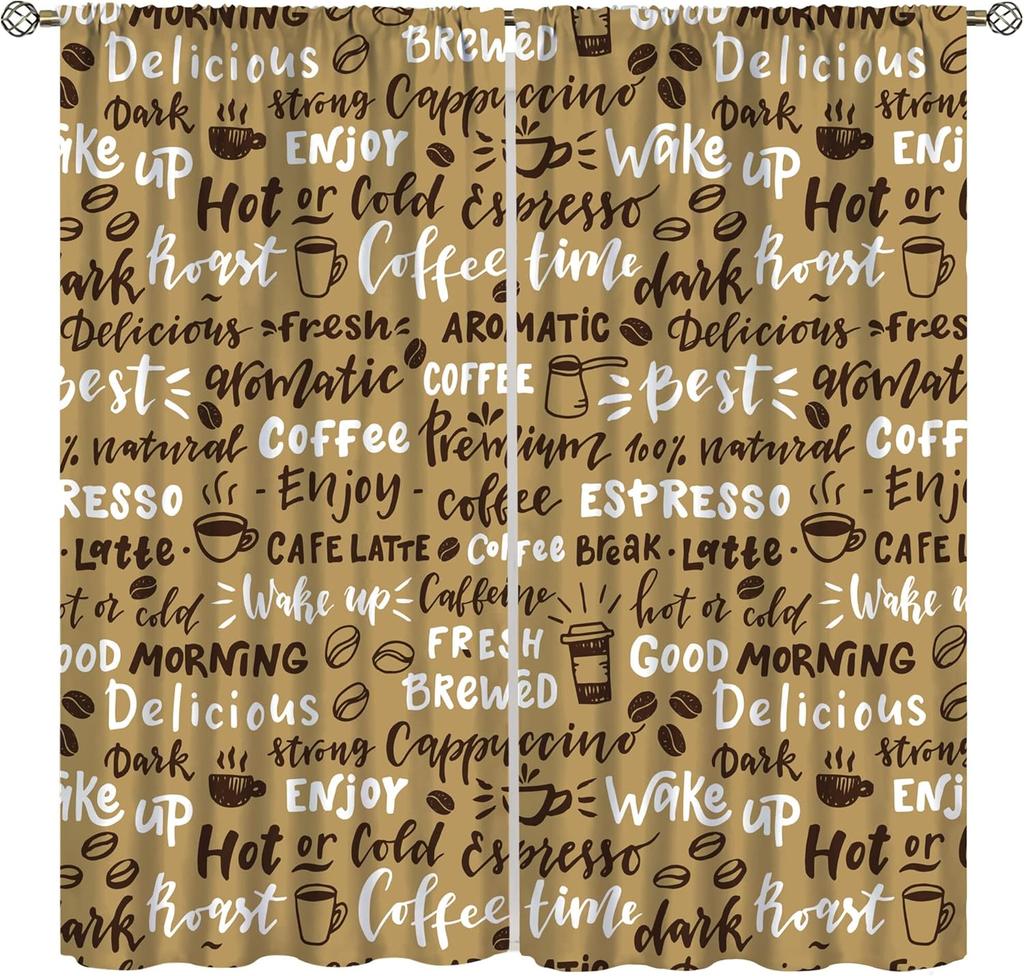 OOD MORNING BREWED GOOD MORNING
Delicious Delicious
Dark strong Cappuccino Dark strong
ake up ENJOY Wake up ENJ
Hot or Cold Espresso Hot or C
dark Roast Coffee time dark Roast
Delicious fresh AROMATIC Delicious fres
Best aromatic COFFEE Best aromat
% natural Coffee Premium 100% natural COFF
RESSO - Enjoy - coffee ESPRESSO - Enjo
· Latte · CAFE LATTE Coffee Break · Latte · CAFE L
ot or cold Wake up Caffeine hot or cold Wake u
OOD MORNING FRESH GOOD MORNING
Delicious BREWED Delicious
Dark strong Cappuccino Dark strong
ake up ENJOY Wake up ENJ
Hot or Cold Espresso Hot or C
ark Roast Coffee time dark Roast